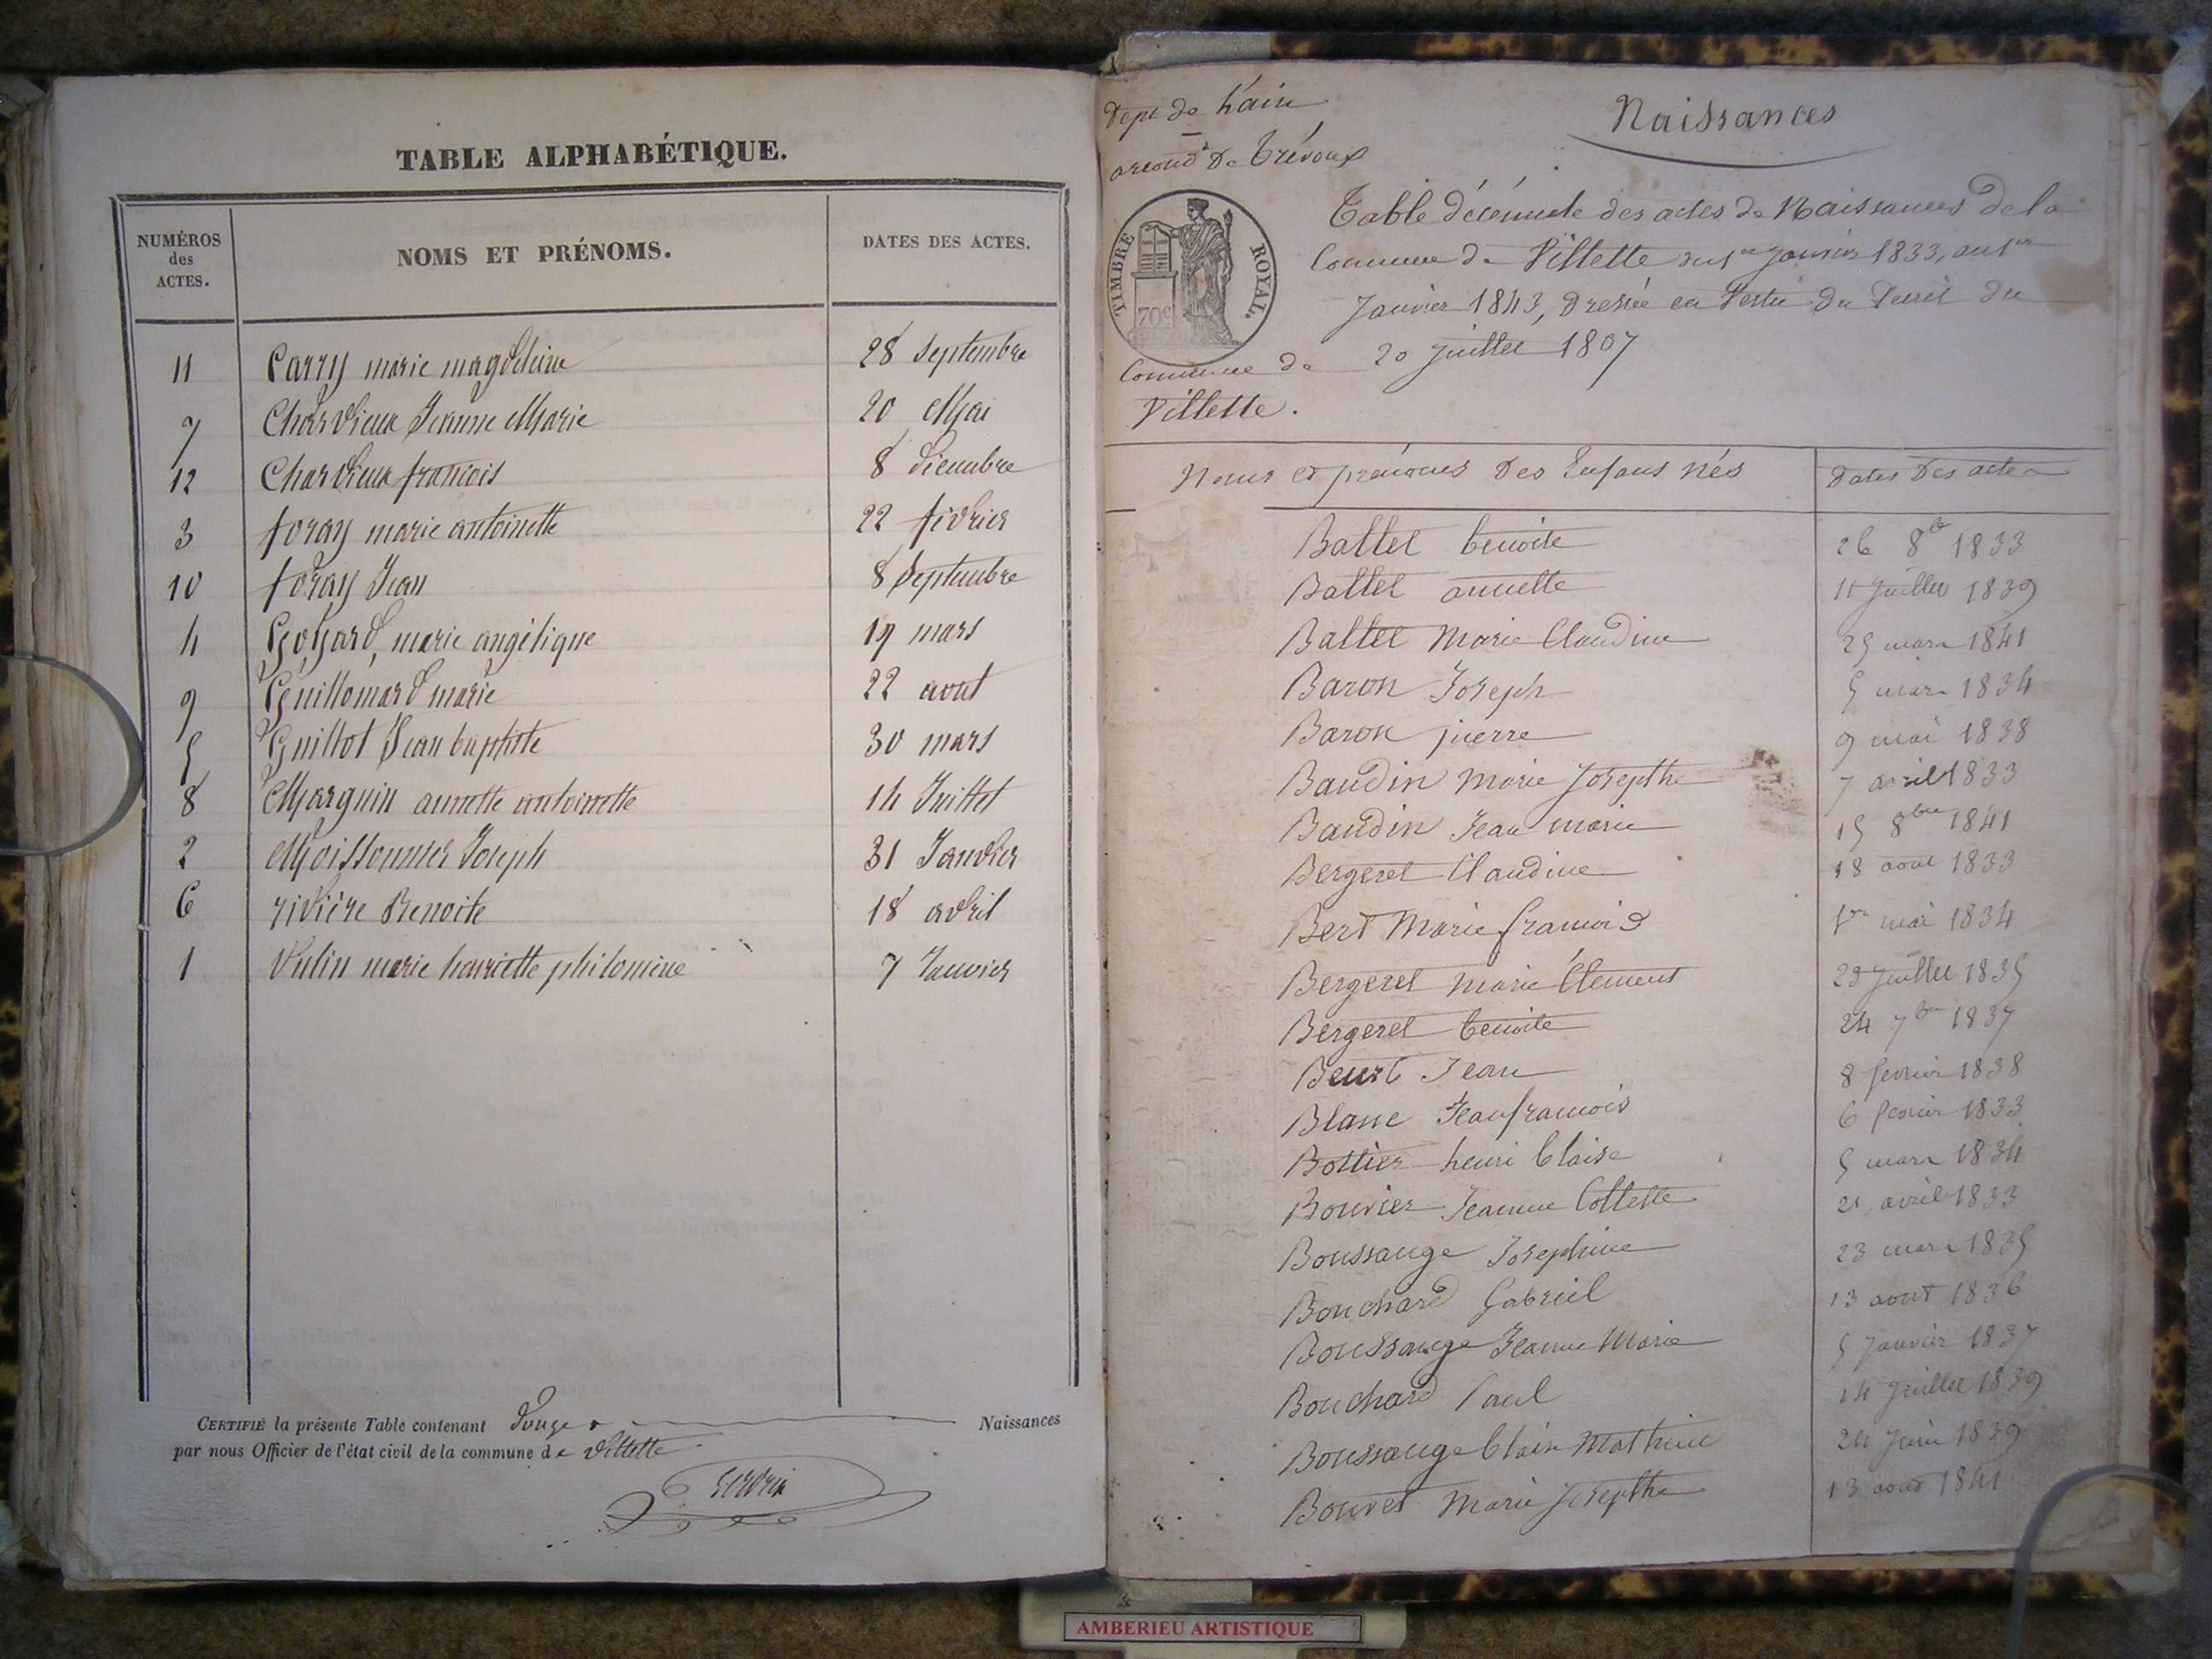 TABLE ALPHABÉTIQUE.
NUMÉROS des ACTES. NOMS ET PRÉNOMS. DATES DES ACTES.
11 Carry marie magdeleine 28 Septembre
7 Charvieux Jeanne Marie 20 Mai
12 Charvieux francois 8 Décembre
3 foray marie antoinette 22 février
10 foray Jean 8 Septembre
4 Goyard, marie angélique 19 mars
9 Guillomard marie 22 aout
5 Guillot Jean baptiste 30 mars
8 Marguin annette antoinette 14 Juillet
2 Moissonnier Joseph 31 Janvier
6 rivière Benoite 18 avril
1 Vulin marie henriette philomène 7 Janvier
CERTIFIÉ la présente Table contenant douze Naissances
par nous Officier de l'état civil de la commune de Villette
Dept de L'ain
arrond^t De Trévoux
TIMBRE ROYAL.
70c
Commune de
Villette.
Naissances
Table décennale des actes de Naissances de la
Commune de Villette du 1er Janvier 1833, au 1er
Janvier 1843, Dressée en Vertu du Décret du
20 Juillet 1807
Noms et prénoms Des Enfans nés Dates Des actes
Battet benoite 26 8bre 1833
Battet annette 11 Juillet 1839
Battet Marie Claudine 25 mars 1841
Baron Joseph 5 mars 1834
Baron pierre 9 mai 1838
Baudin Marie Josepthe 7 avril 1833
Baudin Jean marie 15 8bre 1841
Bergeret Claudine 18 aout 1833
Bert Marie francois 1er mai 1834
Bergeret Marie Clement Juillet 1835
Bergeret benoite 24 7bre 1837
Jean 8 fevrier 1838
Blanc Jean francois 6 fevrier 1833
Bottier henri Claise 5 mars 1834
Bouvier Jeanne Collette 21 avril 1833
Boussange Josephine 23 mars 1835
Bouchard Gabriel 13 aout 1836
Boussange Jeanne Marie 5 Janvier 1837
Bouchard Paul 14 Juillet 1839
Boussange Clair Mathieu 24 Juin 1839
Bouvet Marie Josepthe 13 aout 1841
AMBERIEU ARTISTIQUE